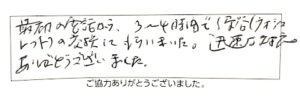 最初の電話から、3〜4時間で(
の交換にもらいました。迅速な対応
ありがとうございました。
ご協力ありがとうございました。